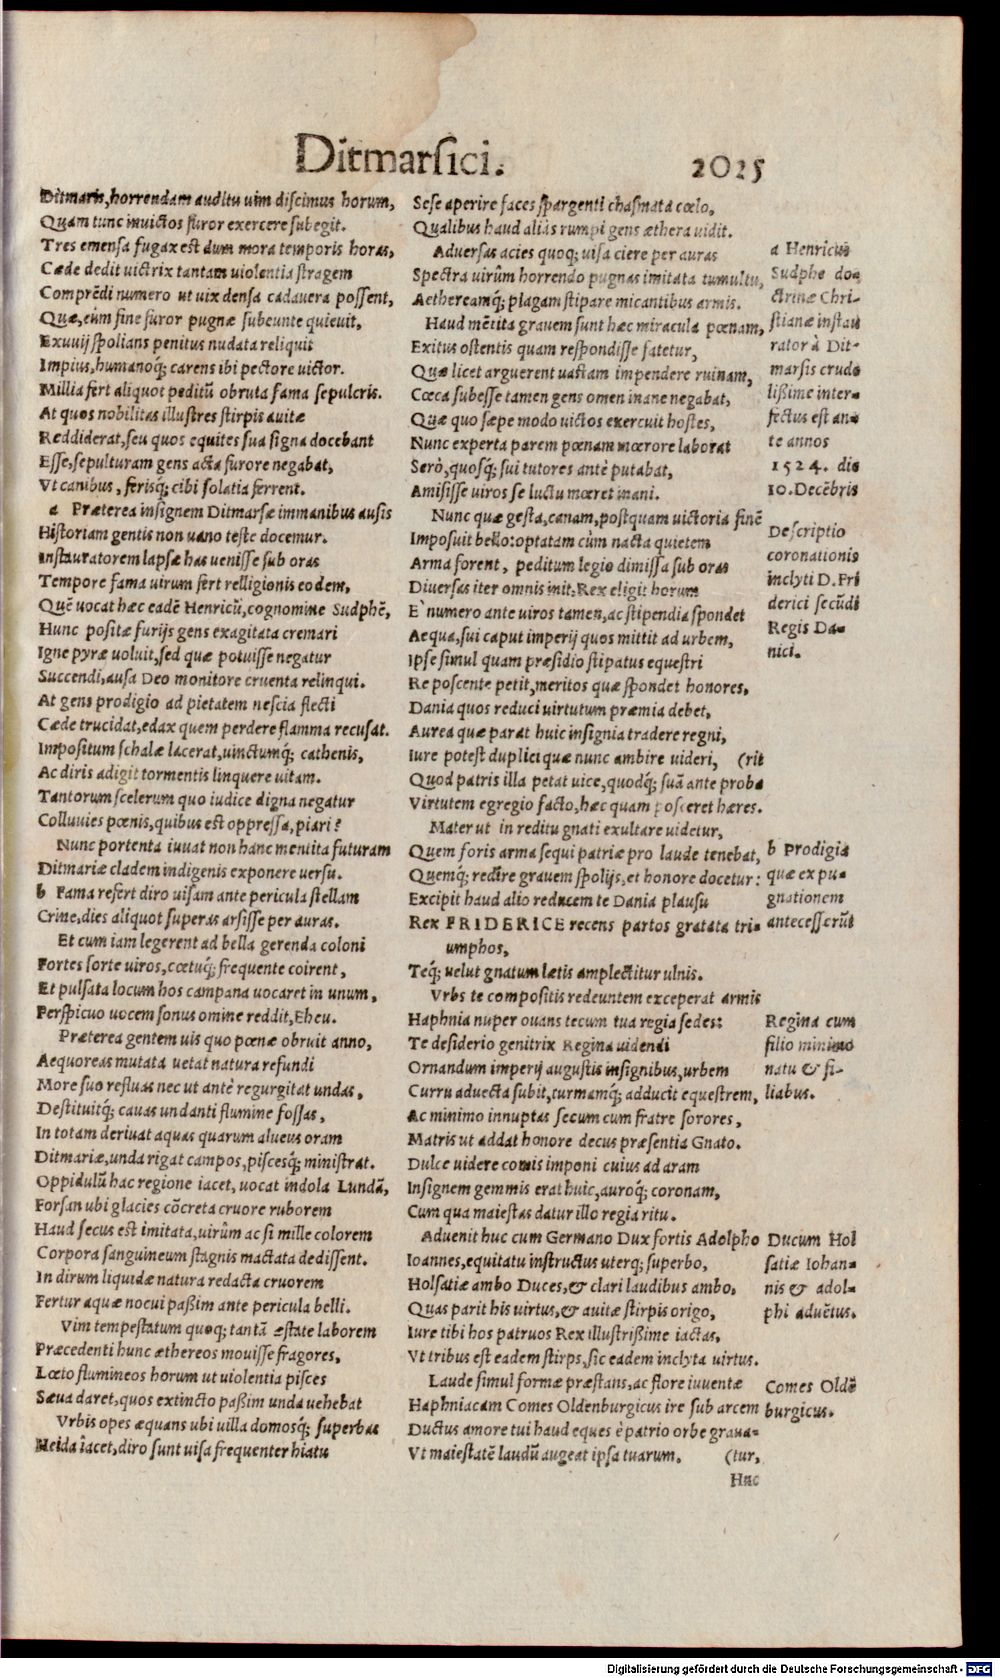 Ditmarsici. 2025
Ditmaris, horrendam auditu uim discimus horum,
Quam tunc inuictos furor exercere subegit.
Tres emensa fugax est dum mora temporis horas,
Cæde dedit uictrix tantam uiolentia stragem
Comprẽdi numero ut uix densa cadauera possent,
Quæ, cùm fine furor pugnæ subeunte quieuit,
Exuuij spolians penitus nudata reliquit
Impius, humanoq́; carens ibi pectore uictor.
Millia fert aliquot peditũ obruta fama sepulcris.
At quos nobilitas illustres stirpis auitæ
Reddiderat, seu quos equites sua signa docebant
Esse, sepulturam gens acta furore negabat,
Vt canibus, ferisq́; cibi solatia ferrent.
a Præterea insignem Ditmarsæ immanibus ausis
Historiam gentis non uano teste docemur.
Instauratorem lapsæ has uenisse sub oras
Tempore fama uirum fert relligionis eodem,
Quẽ uocat hæc eadẽ Henricũ, cognomine Sudphẽ,
Hunc positæ furijs gens exagitata cremari
Igne pyræ uoluit, sed quæ potuisse negatur
Succendi, ausa Deo monitore cruenta relinqui.
At gens prodigio ad pietatem nescia flecti
Cæde trucidat, edax quem perdere flamma recusat.
Impositum schalæ lacerat, uinctumq́; cathenis,
Ac diris adigit tormentis linquere uitam.
Tantorum scelerum quo iudice digna negatur
Colluuies pœnis, quibus est oppressa, piari?
Nunc portenta iuuat non hanc mentita futuram
Ditmariæ cladem indigenis exponere uersu.
b Fama refert diro uisam ante pericula stellam
Crine, dies aliquot superas arsisse per auras.
Et cum iam legerent ad bella gerenda coloni
Fortes sorte uiros, cœtuq́; frequente coirent,
Et pulsata locum hos campana uocaret in unum,
Perspicuo uocem sonus omine reddit, Eheu.
Præterea gentem uis quo pœnæ obruit anno,
Aequoreas mutata uetat natura refundi
More suo refluas nec ut antè regurgitat undas,
Destituitq́; cauas undanti flumine fossas,
In totam deriuat aquas quarum alueus oram
Ditmariæ, unda rigat campos, piscesq́; ministrat.
Oppidulũ hac regione iacet, uocat indola Lundã,
Forsan ubi glacies cõcreta cruore ruborem
Haud secus est imitata, uirûm ac si mille colorem
Corpora sanguineum stagnis mactata dedissent.
In dirum liquidæ natura redacta cruorem
Fertur aquæ nocui paßim ante pericula belli.
Vim tempestatum quoq; tantã æstate laborem
Præcedenti hunc æthereos mouisse fragores,
Lœto flumineos horum ut uiolentia pisces
Sæua daret, quos extincto paßim unda uehebat
Vrbis opes æquans ubi uilla domosq́; superbas
Heida iacet, diro sunt uisa frequenter hiatu
Sese aperire faces spargenti chasmata cœlo,
Qualibus haud aliàs rumpi gens æthera uidit.
Aduersas acies quoq; uisa ciere per auras
Spectra uirûm horrendo pugnas imitata tumultu,
Aethereamq́; plagam stipare micantibus armis.
Haud mẽtita grauem sunt hæc miracula pœnam,
Exitus ostentis quam respondisse fatetur,
Quæ licet arguerent uastam impendere ruinam,
Cæca subesse tamen gens omen inane negabat,
Quæ quo sæpe modo uictos exercuit hostes,
Nunc experta parem pœnam mœrore laborat
Serò, quosq́; sui tutores antè putabat,
Amisisse uiros se luctu mœret inani.
Nunc quæ gesta, canam, postquam uictoria finẽ
Imposuit bello: optatam cùm nacta quietem
Arma forent, peditum legio dimissa sub oras
Diuersas iter omnis init, Rex eligit horum
È numero ante uiros tamen, ac stipendia spondet
Aequa, sui caput imperij quos mittit ad urbem,
Ipse simul quam præsidio stipatus equestri
Re poscente petit, meritos quæ spondet honores,
Dania quos reduci uirtutum præmia debet,
Aurea quæ parat huic insignia tradere regni,
Iure potest duplici quæ nunc ambire uideri, (rit
Quod patris illa petat uice, quodq́; suã ante proba
Virtutem egregio facto, hæc quam posceret hæres.
Mater ut in reditu gnati exultare uidetur,
Quem foris arma sequi patriæ pro laude tenebat,
Quemq́; redire grauem spolijs, et honore docetur:
Excipit haud alio reducem te Dania plausu
Rex FRIDERICE recens partos gratata tri-
umphos,
Teq́; uelut gnatum lætis amplectitur ulnis.
Vrbs te compositis redeuntem exceperat armis
Haphnia nuper ouans tecum tua regia sedes:
Te desiderio genitrix Regina uidendi
Ornandum imperij augustis insignibus, urbem
Curru aduecta subit, turmamq́; adducit equestrem,
Ac minimo innuptas secum cum fratre sorores,
Matris ut addat honore decus præsentia Gnato.
Dulce uidere comis imponi cuius ad aram
Insignem gemmis erat huic, auroq́; coronam,
Cum qua maiestas datur illo regia ritu.
Aduenit huc cum Germano Dux fortis Adolpho
Ioannes, equitatu instructus uterq; superbo,
Holsatiæ ambo Duces, & clari laudibus ambo,
Quas parit his uirtus, & auitæ stirpis origo,
Iure tibi hos patruos Rex illustrißime iactas,
Vt tribus est eadem stirps, sic eadem inclyta uirtus.
Laude simul formæ præstans, ac flore iuuentæ
Haphniacam Comes Oldenburgicus ire sub arcem
Ductus amore tui haud eques è patrio orbe graua-
Vt maiestatẽ laudũ augeat ipsa tuarum. (tur,
Huc
a Henricus
Sudphe do-
ctrinæ Chri-
stianæ instau
rator à Dit-
marsis crude
lißime inter-
fectus est an-
te annos
1524. die
10. Decẽbris
Descriptio
coronationis
inclyti D. Fri
derici secũdi
Regis Da-
nici.
b Prodigia
quæ expu-
gnationem
antecesserũt
Regina cum
filio minimo
natu & fi-
liabus.
Ducum Hol
satiæ Iohan-
nis & adol-
phi aduẽtus.
Comes Oldẽ
burgicus.
Digitalisierung gefördert durch die Deutsche Forschungsgemeinschaft - DFG